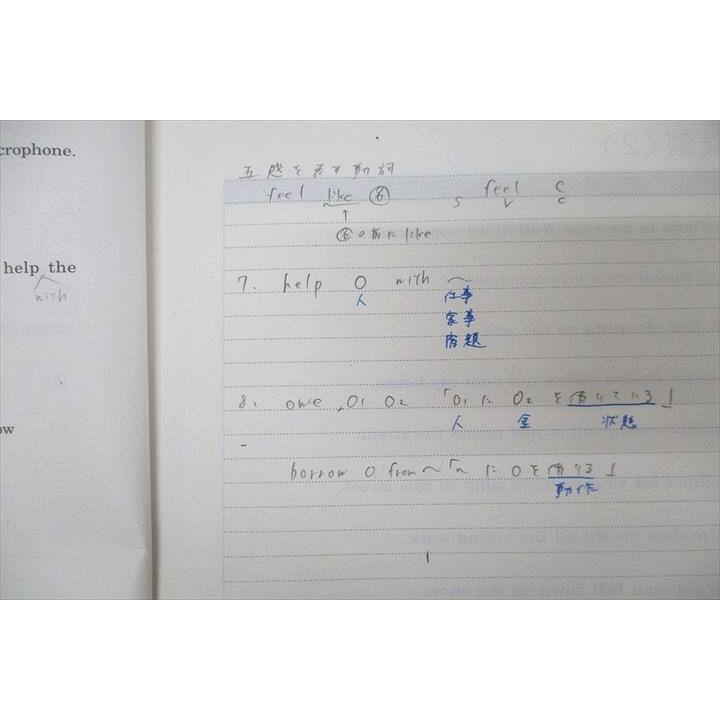 crophone.
help the
with
ow
五感を表す動詞
feel like 名 S feel C
V C
↑
名の前に like
7. help O with ～
人 仕事
家事
宿題
8. owe O1 O2 「O1 に O2 を借りている」
人 金 状態
borrow O from ～「～に O を借りる」
動作